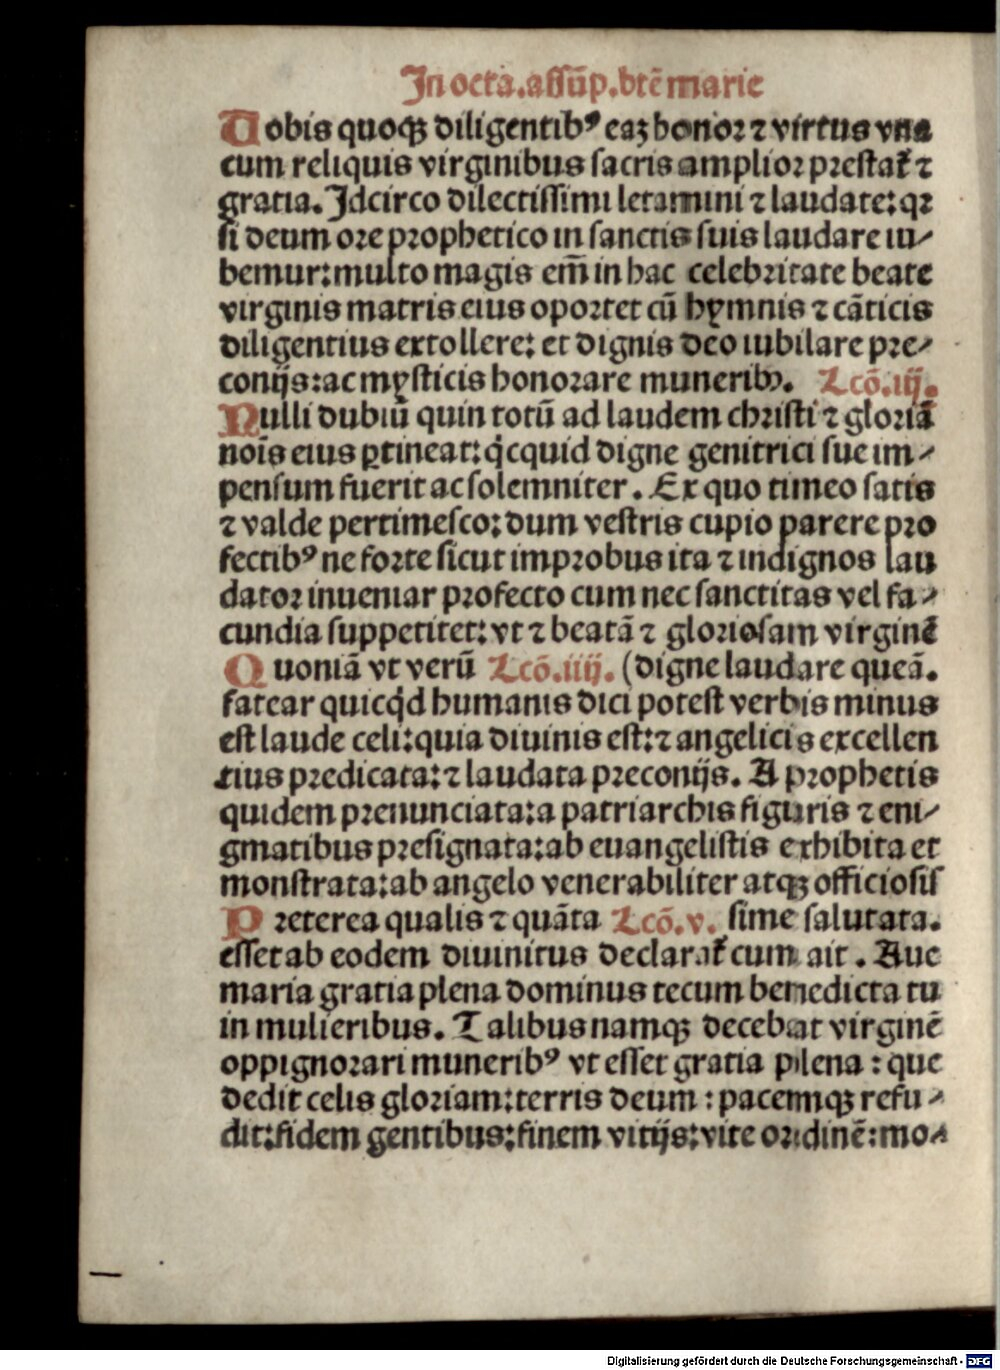 In octa.assūp.btē marie
Uobis quoqꝫ diligentibꝰ eaꝝ honor ⁊ virtus vna
cum reliquis virginibus sacris amplior prestat̉ ⁊
gratia. Idcirco dilectissimi letamini ⁊ laudate: qꝛ
si deum ore prophetico in sanctis suis laudare iu⸗
bemur: multo magis em̄ in hac celebritate beate
virginis matris eius oportet cū hymnis ⁊ cāticis
diligentius extollere: et dignis deo iubilare pre⸗
conijs: ac mysticis honorare muneribꝰ. Lcō.iij.
Nulli dubiū quin totū ad laudem christi ⁊ gloriā
nois̄ eius ꝑtineat: q̇cquid digne genitrici sue im⸗
pensum fuerit ac solemniter. Ex quo timeo satis
⁊ valde pertimesco: dum vestris cupio parere pro
fectibꝰ ne forte sicut improbus ita ⁊ indignos lau
dator inueniar profecto cum nec sanctitas vel fa⸗
cundia suppetitet: vt ⁊ beatā ⁊ gloriosam virginē
Quoniā vt verū Lcō.iiij. (digne laudare queā.
fatear quicq̇d humanis dici potest verbis minus
est laude celi: quia diuinis est: ⁊ angelicis excellen
tius predicata: ⁊ laudata preconijs. A prophetis
quidem prenunciata: a patriarchis figuris ⁊ eni⸗
gmatibus presignata: ab euangelistis exhibita et
monstrata: ab angelo venerabiliter atqꝫ officiosis
Preterea qualis ⁊ quāta Lcō.v. sime salutata.
esset ab eodem diuinitus declarat̉ cum ait. Aue
maria gratia plena dominus tecum benedicta tu
in mulieribus. Talibus namqꝫ decebat virginē
oppignorari muneribꝰ vt esset gratia plena: que
dedit celis gloriam: terris deum: pacemqꝫ refu⸗
dit: fidem gentibus: finem vitijs: vite ordinē: mo⸗
Digitalisierung gefördert durch die Deutsche Forschungsgemeinschaft - DFG